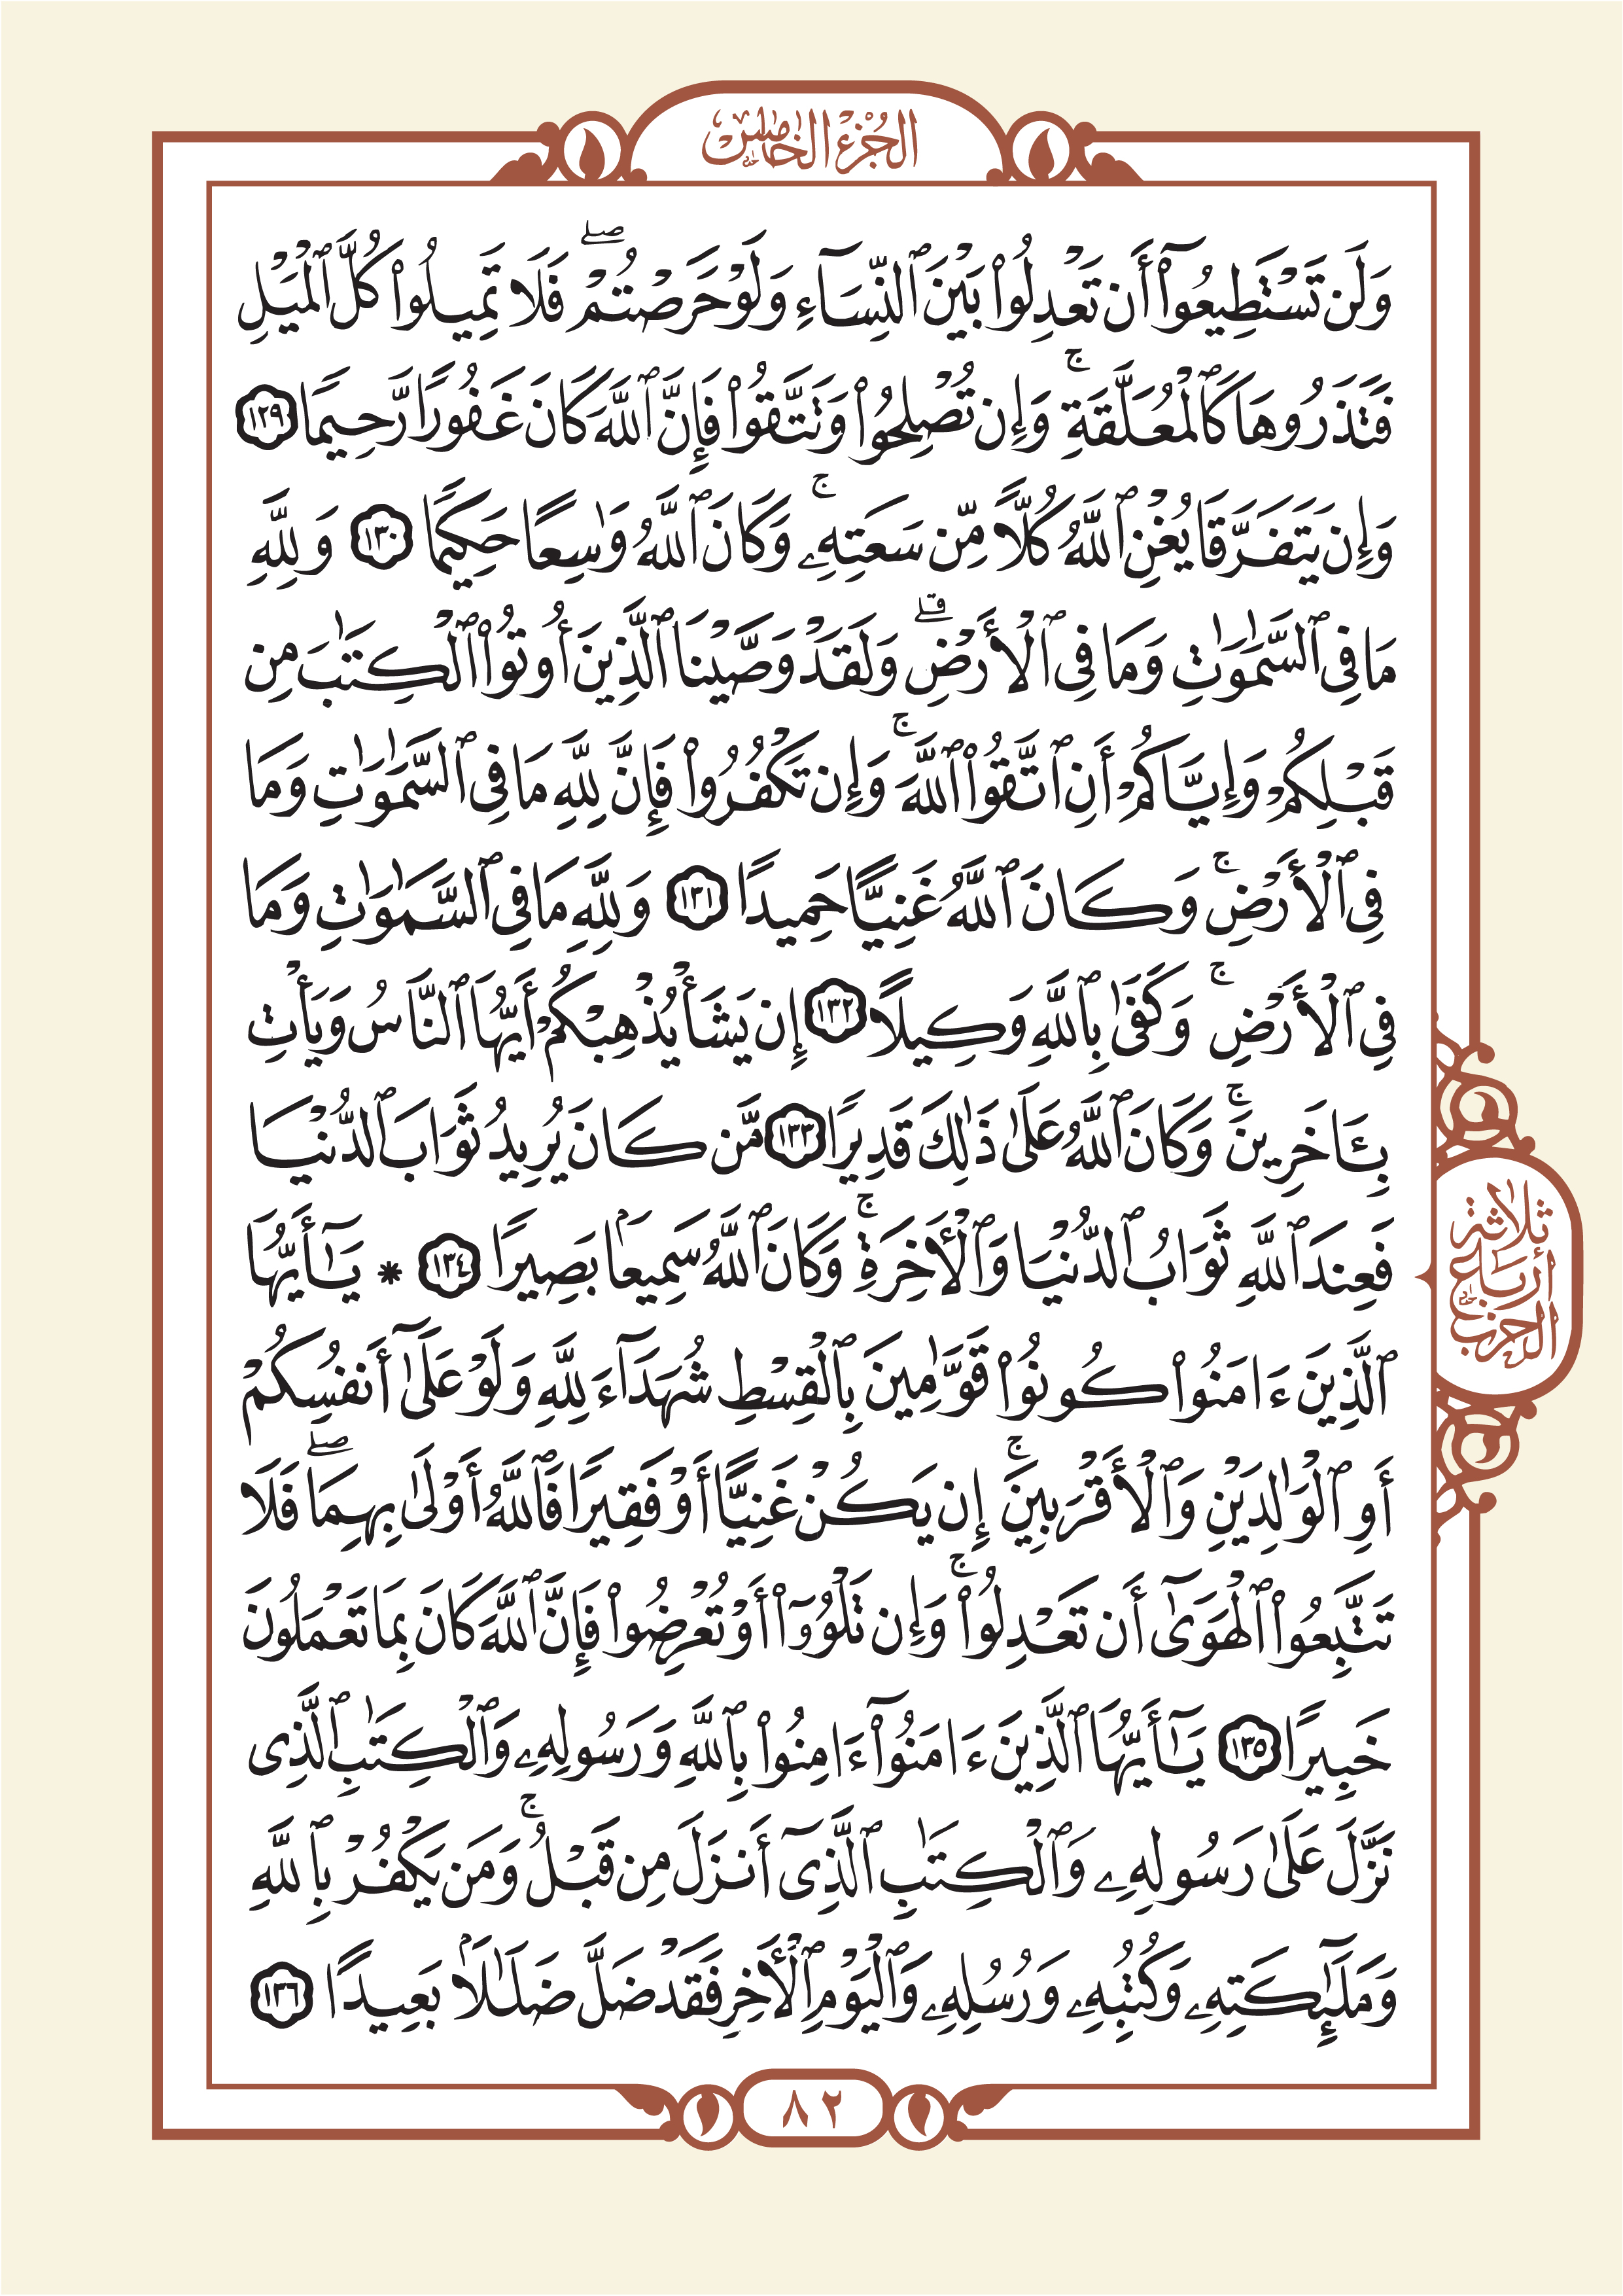 الجزء الخامس
وَلَن تَسْتَطِيعُوٓا۟ أَن تَعْدِلُوا۟ بَيْنَ ٱلنِّسَآءِ وَلَوْ حَرَصْتُمْ ۖ فَلَا تَمِيلُوا۟ كُلَّ ٱلْمَيْلِ
فَتَذَرُوهَا كَٱلْمُعَلَّقَةِ ۚ وَإِن تُصْلِحُوا۟ وَتَتَّقُوا۟ فَإِنَّ ٱللَّهَ كَانَ غَفُورًا رَّحِيمًا ١٢٩
وَإِن يَتَفَرَّقَا يُغْنِ ٱللَّهُ كُلًّا مِّن سَعَتِهِۦ ۚ وَكَانَ ٱللَّهُ وَٰسِعًا حَكِيمًا ١٣٠ وَلِلَّهِ
مَا فِى ٱلسَّمَٰوَٰتِ وَمَا فِى ٱلْأَرْضِ ۗ وَلَقَدْ وَصَّيْنَا ٱلَّذِينَ أُوتُوا۟ ٱلْكِتَٰبَ مِن
قَبْلِكُمْ وَإِيَّاكُمْ أَنِ ٱتَّقُوا۟ ٱللَّهَ ۚ وَإِن تَكْفُرُوا۟ فَإِنَّ لِلَّهِ مَا فِى ٱلسَّمَٰوَٰتِ وَمَا
فِى ٱلْأَرْضِ ۚ وَكَانَ ٱللَّهُ غَنِيًّا حَمِيدًا ١٣١ وَلِلَّهِ مَا فِى ٱلسَّمَٰوَٰتِ وَمَا
فِى ٱلْأَرْضِ ۚ وَكَفَىٰ بِٱللَّهِ وَكِيلًا ١٣٢ إِن يَشَأْ يُذْهِبْكُمْ أَيُّهَا ٱلنَّاسُ وَيَأْتِ
بِـَٔاخَرِينَ ۚ وَكَانَ ٱللَّهُ عَلَىٰ ذَٰلِكَ قَدِيرًا ١٣٣ مَّن كَانَ يُرِيدُ ثَوَابَ ٱلدُّنْيَا
فَعِندَ ٱللَّهِ ثَوَابُ ٱلدُّنْيَا وَٱلْأَخِرَةِ ۚ وَكَانَ ٱللَّهُ سَمِيعًۢا بَصِيرًا ١٣٤ * يَٰٓأَيُّهَا
ٱلَّذِينَ ءَامَنُوا۟ كُونُوا۟ قَوَّٰمِينَ بِٱلْقِسْطِ شُهَدَآءَ لِلَّهِ وَلَوْ عَلَىٰٓ أَنفُسِكُمْ
أَوِ ٱلْوَٰلِدَيْنِ وَٱلْأَقْرَبِينَ ۚ إِن يَكُنْ غَنِيًّا أَوْ فَقِيرًا فَٱللَّهُ أَوْلَىٰ بِهِمَا ۖ فَلَا
تَتَّبِعُوا۟ ٱلْهَوَىٰٓ أَن تَعْدِلُوا۟ ۚ وَإِن تَلْوُۥٓا۟ أَوْ تُعْرِضُوا۟ فَإِنَّ ٱللَّهَ كَانَ بِمَا تَعْمَلُونَ
خَبِيرًا ١٣٥ يَٰٓأَيُّهَا ٱلَّذِينَ ءَامَنُوٓا۟ ءَامِنُوا۟ بِٱللَّهِ وَرَسُولِهِۦ وَٱلْكِتَٰبِ ٱلَّذِى
نَزَّلَ عَلَىٰ رَسُولِهِۦ وَٱلْكِتَٰبِ ٱلَّذِىٓ أَنزَلَ مِن قَبْلُ ۚ وَمَن يَكْفُرْ بِٱللَّهِ
وَمَلَٰٓئِكَتِهِۦ وَكُتُبِهِۦ وَرُسُلِهِۦ وَٱلْيَوْمِ ٱلْأَخِرِ فَقَدْ ضَلَّ ضَلَٰلًۢا بَعِيدًا ١٣٦
ثلاثة
أرباع
الحزب
٨٢